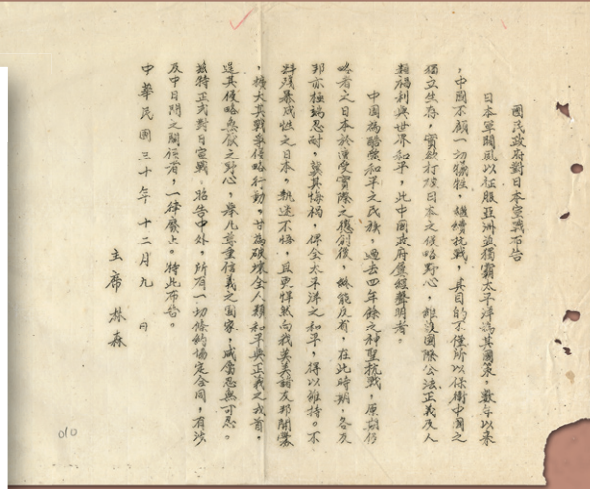 國民政府對日本宣戰布告
日本軍閥夙以征服亞洲並獨霸太平洋為其國策，數年以來
，中國不顧一切犧牲，繼續抗戰，其目的不僅所以保衛中國之
獨立生存，實欲打破日本之侵略野心，維護國際公法正義及人
類福利與世界和平，此中國政府屢經聲明者。
中國為酷愛和平之民族，過去四年餘之神聖抗戰，原期侵
略者之日本於遭受實際之懲創後，終能反省，在此時期，各友
邦亦極端忍耐，冀其悔禍，俾全太平洋之和平，得以維持。不
料殘暴成性之日本，執迷不悟，且更悍然向我英美諸友邦開釁
，擴大其戰爭侵略行動，甘為破壞全人類和平與正義之戎首，
逞其侵略無厭之野心，舉凡尊重信義之國家，咸屬忍無可忍。
茲特正式對日宣戰，昭告中外，所有一切條約協定合同，有涉
及中日間之關係者，一律廢止。特此布告。
中華民國三十年十二月九日
主席 林森
010